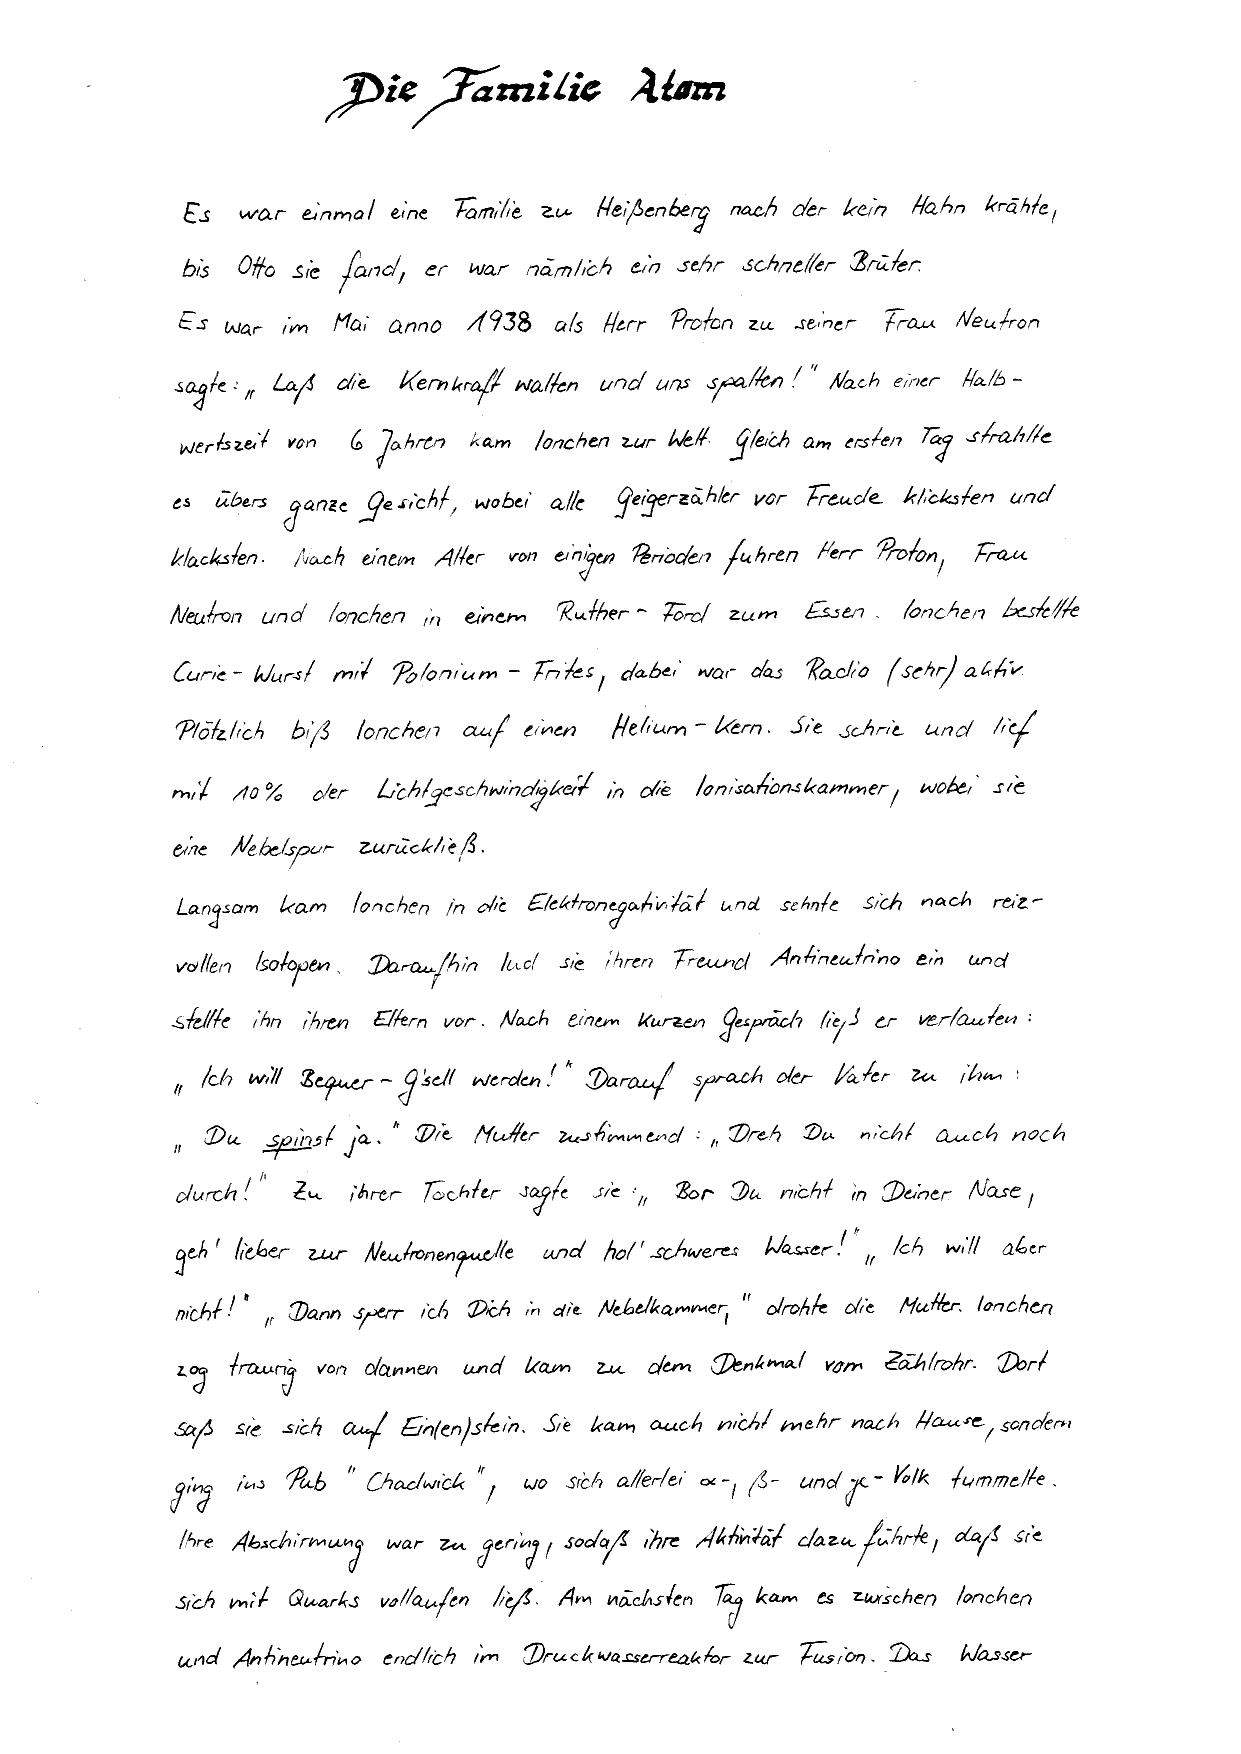 Die Familie Atom
Es war einmal eine Familie zu Heißenberg nach der kein Hahn krähte,
bis Otto sie fand, er war nämlich ein sehr schneller Brüter.
Es war im Mai anno 1938 als Herr Proton zu seiner Frau Neutron
sagte: „Laß die Kernkraft walten und uns spalten!" Nach einer Halb-
wertszeit von 6 Jahren kam Ionchen zur Welt. Gleich am ersten Tag strahlte
es übers ganze Gesicht, wobei alle Geigerzähler vor Freude klicksten und
klacksten. Nach einem Alter von einigen Perioden fuhren Herr Proton, Frau
Neutron und Ionchen in einem Ruther-Ford zum Essen. Ionchen bestellte
Curie-Wurst mit Polonium-Frites, dabei war das Radio (sehr) aktiv.
Plötzlich biß Ionchen auf einen Helium-Kern. Sie schrie und lief
mit 10% der Lichtgeschwindigkeit in die Ionisationskammer, wobei sie
eine Nebelspur zurückließ.
Langsam kam Ionchen in die Elektronegativität und sehnte sich nach reiz-
vollen Isotopen. Daraufhin lud sie ihren Freund Antineutrino ein und
stellte ihn ihren Eltern vor. Nach einem kurzen Gespräch ließ er verlauten:
„Ich will Bequer-G'sell werden!" Darauf sprach der Vater zu ihm:
„Du spinst ja." Die Mutter zustimmend: „Dreh Du nicht auch noch
durch!" Zu ihrer Tochter sagte sie: „Bor Du nicht in Deiner Nase,
geh' lieber zur Neutronenquelle und hol' schweres Wasser!" „Ich will aber
nicht!" „Dann sperr ich Dich in die Nebelkammer," drohte die Mutter. Ionchen
zog traurig von dannen und kam zu dem Denkmal vom Zählrohr. Dort
saß sie sich auf Ein(en)stein. Sie kam auch nicht mehr nach Hause, sondern
ging ins Pub "Chadwick", wo sich allerlei α-, β- und γ-Volk tummelte.
Ihre Abschirmung war zu gering, sodaß ihre Aktivität dazu führte, daß sie
sich mit Quarks vollaufen ließ. Am nächsten Tag kam es zwischen Ionchen
und Antineutrino endlich im Druckwasserreaktor zur Fusion. Das Wasser